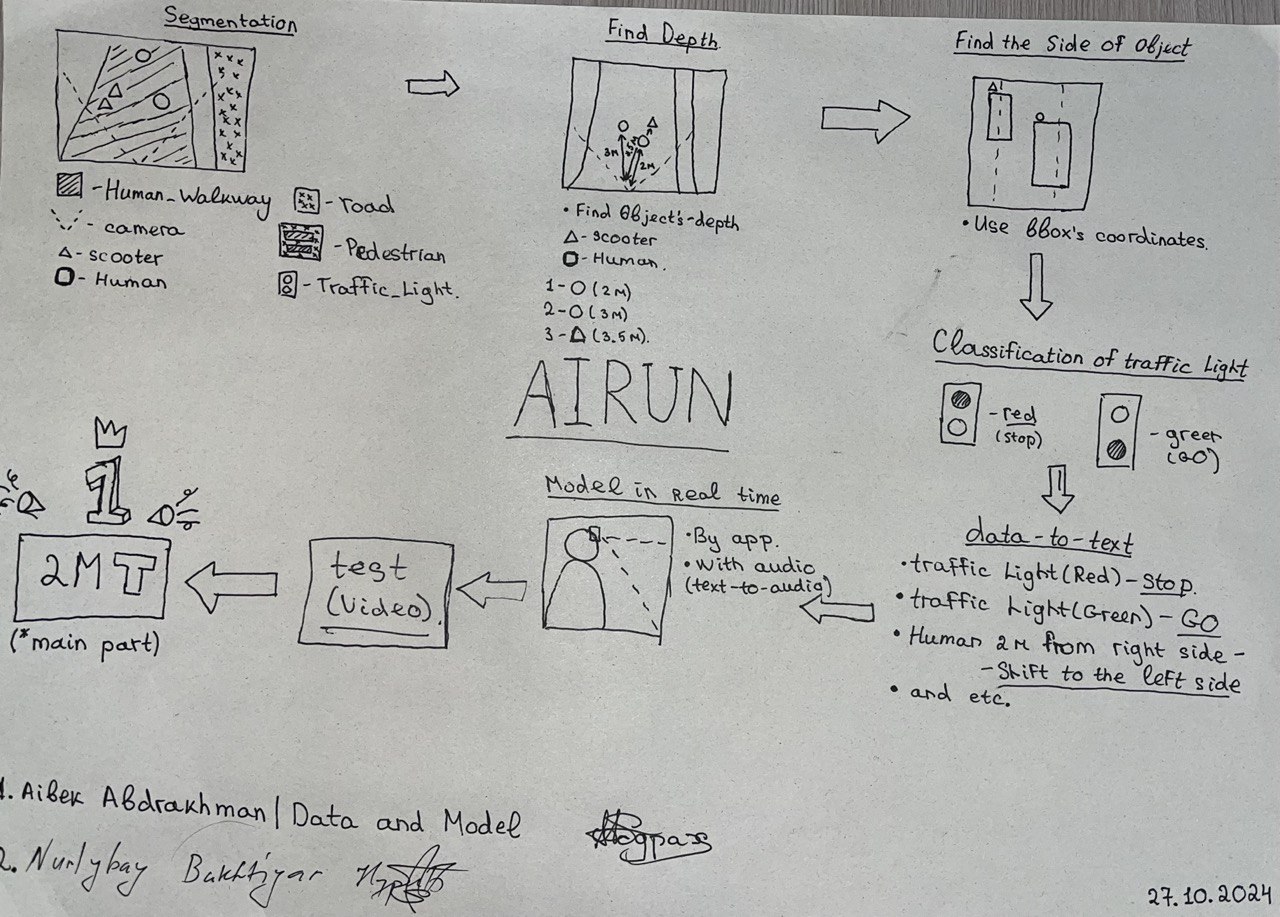 Segmentation
- Human_Walkway
- camera
- scooter
- Human
- road
- Pedestrian
- Traffic_Light.
Find Depth
3м
3.5м
2м
• Find Object's-depth
- scooter
- Human.
1- O (2м)
2- O (3м)
3- △ (3.5м).
Find the Side of Object
• Use bbox's coordinates.
Classification of traffic Light
- red
(stop)
- green
(GO)
data-to-text
• traffic Light(Red) - Stop.
• traffic Light(Green) - GO
• Human 2м from right side -
- Shift to the left side
• and etc.
AIRUN
Model in Real time
• By app.
• With audio
(text-to-audio)
test
(Video).
1
2MT
(*main part)
1. Aibek Abdrakhman | Data and Model
2. Nurlybay Bakhtiyar
27.10.2024